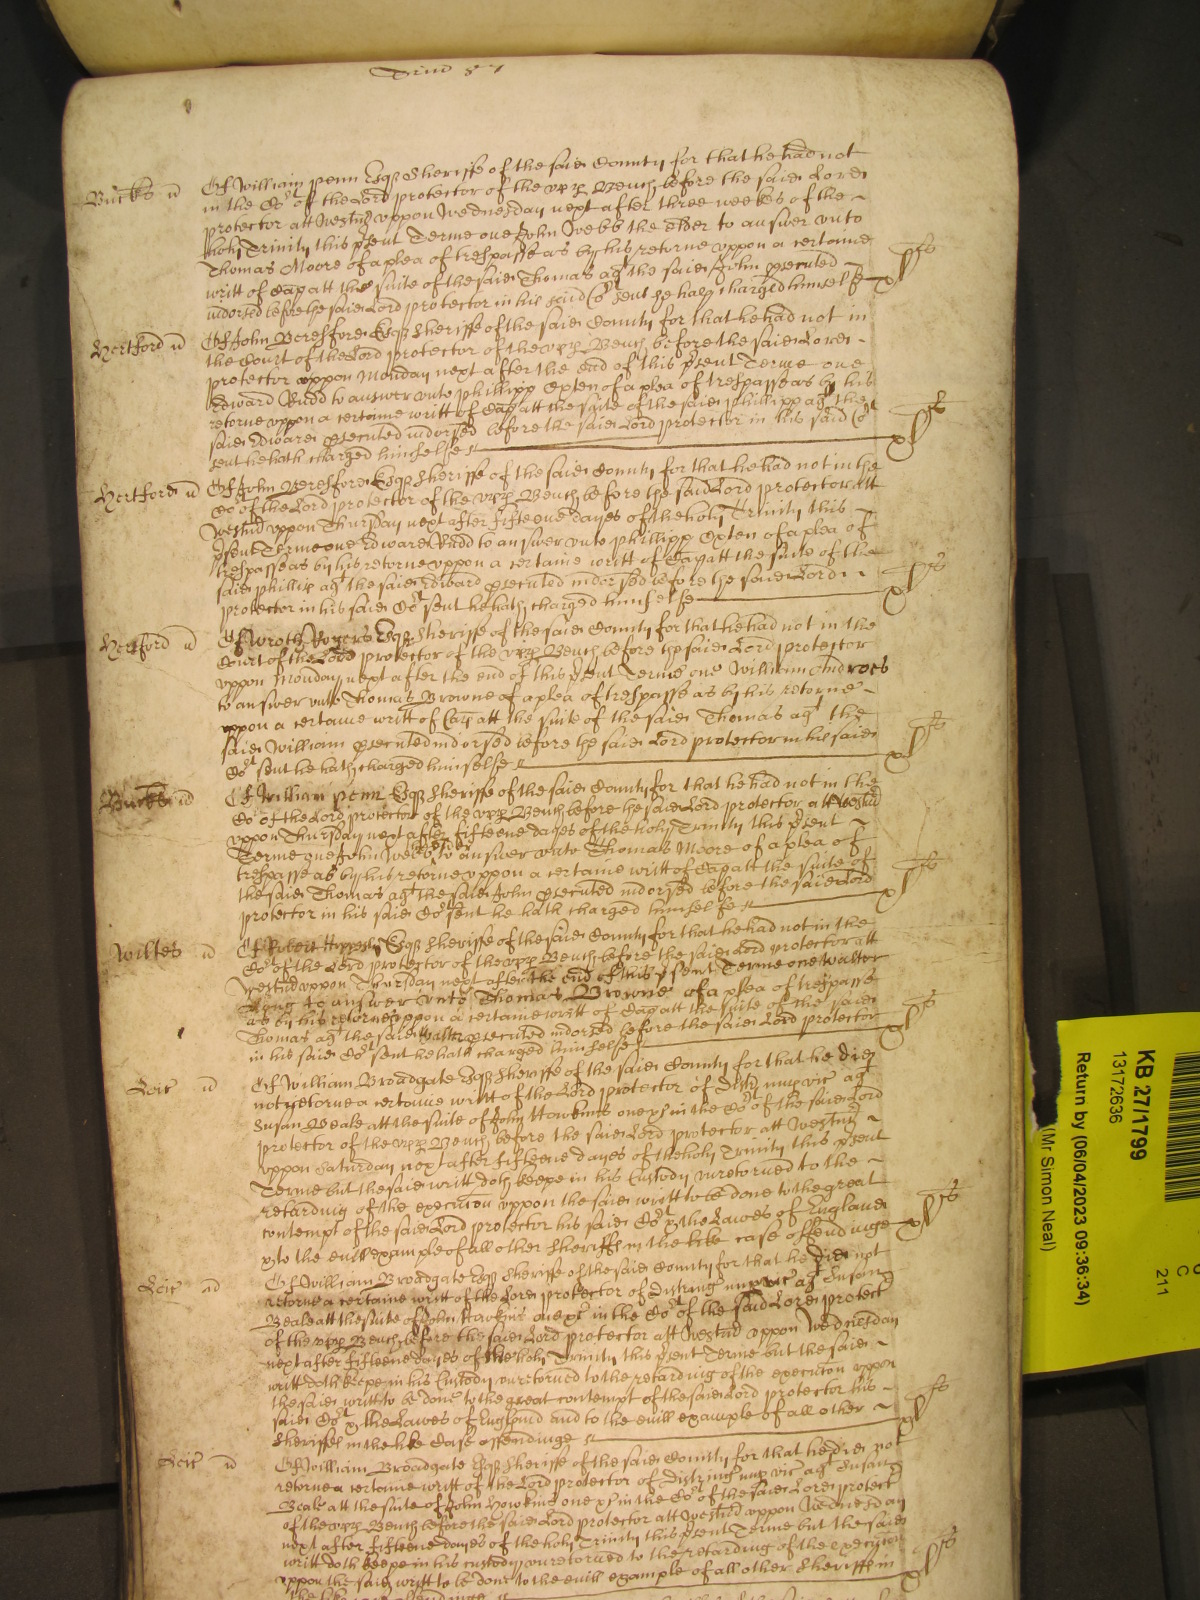 Trin 57
Bucks Of William Penn Esqr Sheriffe of the said County for that he had not
in the Cort of the Lord Protector of the upp Bench before the said Lord
Protector att Westm uppon Wednesday next after three weekes of the
holy Trinity this psent Terme one John Webb the elder to answer unto
Thomas Moore of a plea of trespasse as by his returne uppon a certaine
writt of Cap att the suite of the said Thomas agt the said John executed
indorsed before the said Lord Protector in his said Cort sent he hath charged himselfe
Hertford Of John Beresford Esqr Sheriffe of the said County for that he had not in
the Court of the Lord Protector of the upp Bench before the said Lord
Protector uppon Monday next after the end of this psent Terme one
Edward Rudd to answer unto Phillipp Oxten of a plea of trespasse as by his
returne uppon a certaine writt of Cap att the suite of the said Phillipp agt the
said Edward executed indorsed before the said Lord Protector in his said Cort
sent he hath charged himselfe
Hertford Of John Beresford Esqr Sheriffe of the said County for that he had not in the
Cort of the Lord Protector of the upp Bench before the said Lord Protector att
Westm uppon Thursday next after fifteene dayes of the holy Trinity this
psent Terme one Edward Rudd to answer unto Phillipp Oxten of a plea of
trespasse as by his returne uppon a certaine writt of Cap att the suite of the
said Phillip agt the said Edward executed indorsed before the said Lord
Protector in his said Cort sent he hath charged himselfe
Hereford Of Wroth Rogers Esqr Sheriffe of the said County for that he had not in the
Court of the Lord Protector of the upp Bench before the said Lord Protector
uppon Monday next after the end of this psent Terme one William Androes
to answer unto Thomas Browne of a plea of trespasse as by his returne
uppon a certaine writt of Cap att the suite of the said Thomas agt the
said William executed indorsed before the said Lord Protector in his said
Cort sent he hath charged himselfe
Bucks Of William Penn Esqr Sheriffe of the said County for that he had not in the
Cort of the Lord Protector of the upp Bench before the said Lord Protector att Westm
uppon Thursday next after fifteene dayes of the holy Trinity this psent
Terme one John Webb to answer unto Thomas Moore of a plea of
trespasse as by his returne uppon a certaine writt of Cap att the suite of
the said Thomas agt the said John executed indorsed before the said Lord
Protector in his said Cort sent he hath charged himselfe
Wiltes Of Robert Esqr Sheriffe of the said County for that he had not in the
Cort of the Lord Protector of the upp Bench before the said Lord Protector att
Westm uppon Thursday next after the end of this psent Terme one Walter
to answer unto Thomas Browne of a plea of trespasse
as by his returne uppon a certaine writt of Cap att the suite of the said
Thomas agt the said Walter executed indorsed before the said Lord Protector
in his said Cort sent he hath charged himselfe
Leic Of William Broadgate Esqr Sheriffe of the said County for that he did
not returne a certaine writt of the Lord Protector of Distr nup vic agt
Susan Beale att the suite of John Hawkins one exr in the Cort of the said Lord
Protector of the upp Bench before the said Lord Protector att Westm
uppon Saturday next after fifteene dayes of the holy Trinity this psent
Terme but the said writt doth keepe in his Custody unretorned to the
retarding of the execution uppon the said writt to be done to the great
contempt of the said Lord Protector his said Cort & the Lawes of England
& to the evill example of all other Sheriffs in the like case offendinge
Leic Of William Broadgate Esqr Sheriffe of the said County for that he did not
returne a certaine writt of the Lord Protector of Distring nup vic agt Susan
Beale att the suite of John Hawkins one exr in the Cort of the said Lord Protect
of the upp Bench before the said Lord Protector att Westm uppon Wednesday
next after fifteene dayes of the holy Trinity this psent Terme but the said
writt doth keepe in his Custody unretorned to the retarding of the execution uppon
the said writt to be done to the great contempt of the said Lord Protector his
said Cort & the Lawes of England and to the evill example of all other
Sheriffes in the like Case offendinge
Leic Of William Broadgate Esqr Sheriffe of the said County for that he did not
returne a certaine writt of the Lord Protector of Distring nup vic agt Susan
Beale att the suite of John Hawkins one exr in the Cort of the said Lord Protect
of the upp Bench before the said Lord Protector att Westm uppon Wednesday
next after fifteene dayes of the holy Trinity this psent Terme but the said
writt doth keepe in his custody unretorned to the retarding of the execution
uppon the said writt to be done to the evill example of all other Sheriffe in
KB 27/1799
13172636
Return by (06/04/2023 09:36:34)
(Mr Simon Neal)
C
211